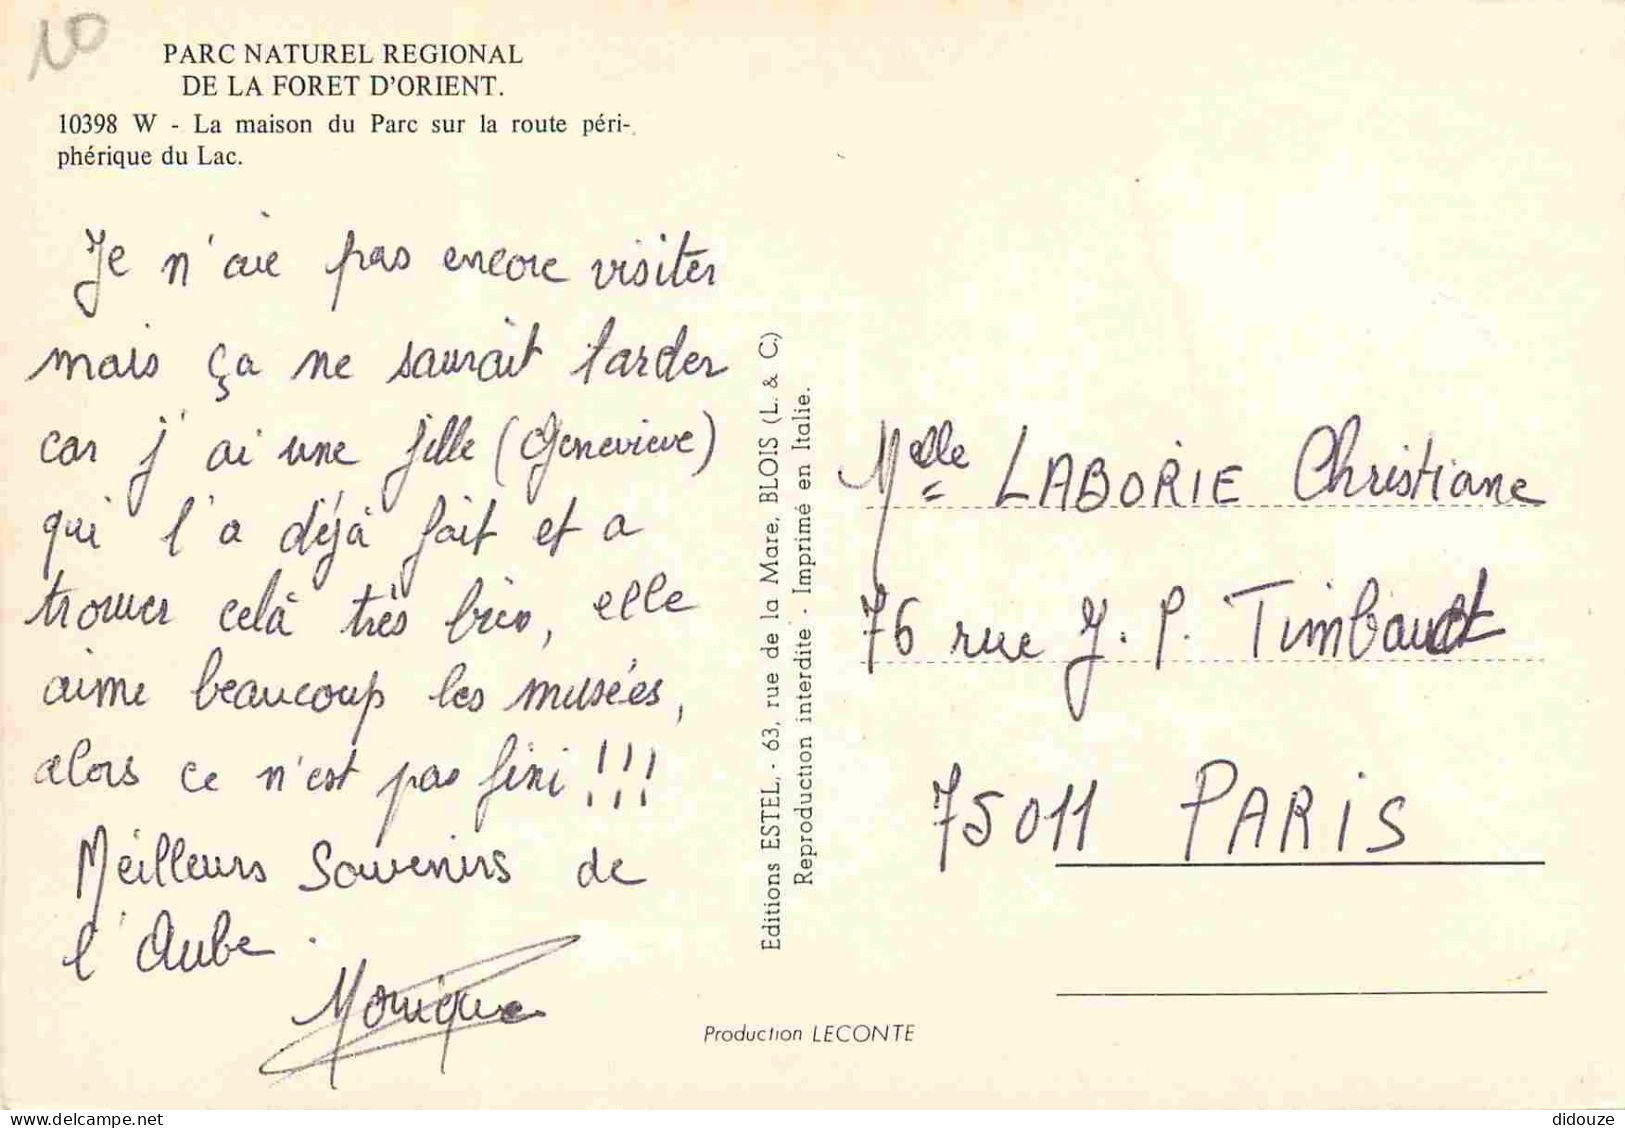 10
PARC NATUREL REGIONAL
DE LA FORET D'ORIENT.
10398 W - La maison du Parc sur la route péri-
phérique du Lac.
Je n'aie pas encore visiter
mais ça ne saurait tarder
car j'ai une fille (Genevieve)
qui l'a déjà fait et a
trouver celà très bien, elle
aime beaucoup les musées,
alors ce n'est pas fini !!!
Meilleurs Souvenirs de
l'Aube.
Monique
Editions ESTEL, - 63, rue de la Mare, BLOIS (L. & C.)
Reproduction interdite - Imprimé en Italie.
Melle LABORIE Christiane
76 rue J. P. Timbaud
75011 PARIS
Production LECONTE
delcampe.net
didouze